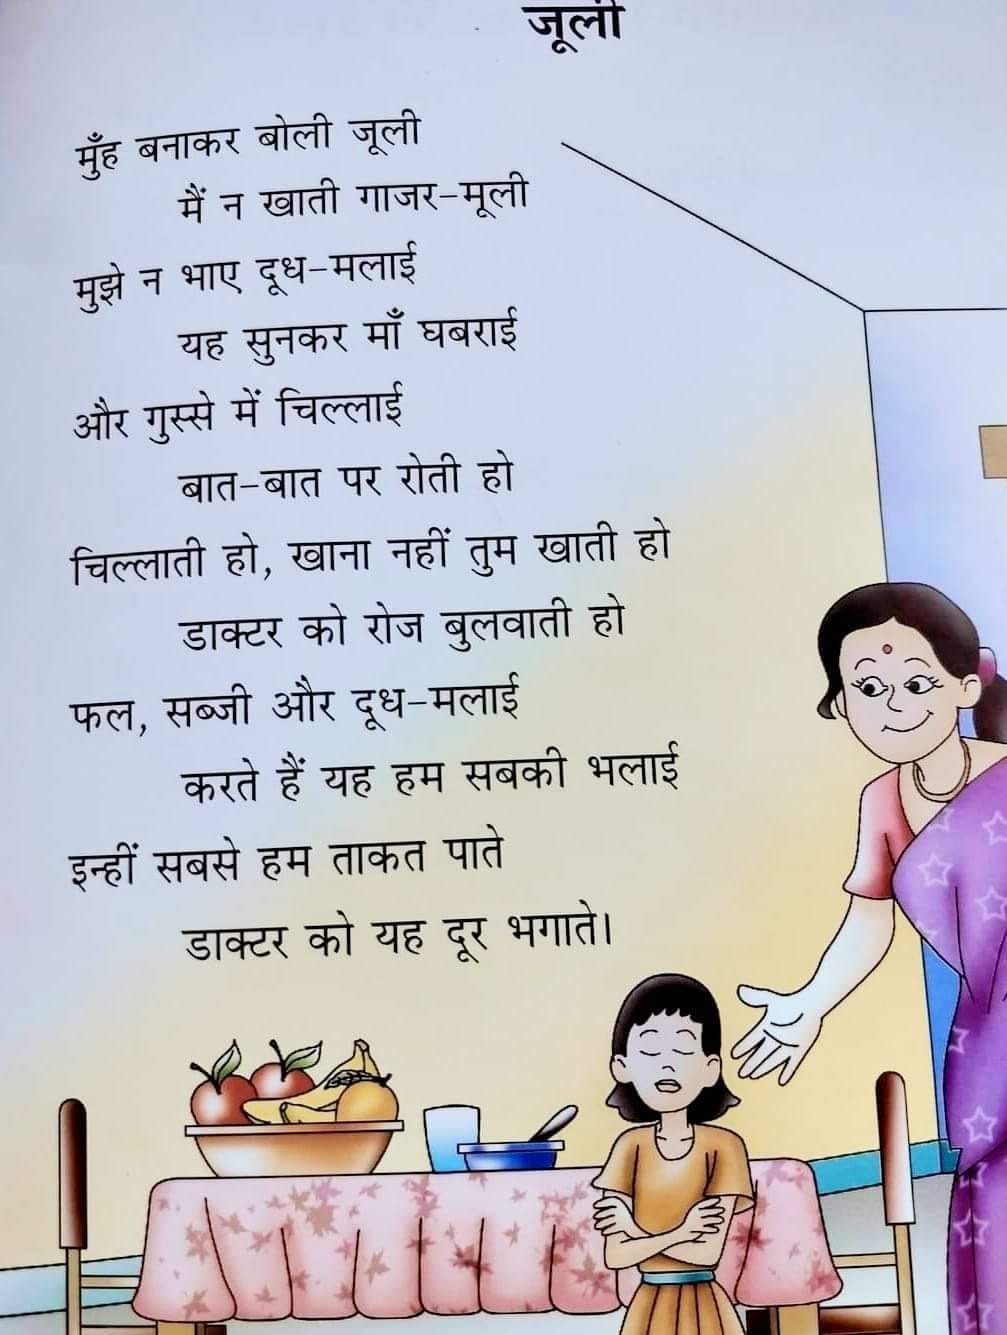 जूली
मुँह बनाकर बोली जूली
मैं न खाती गाजर-मूली
मुझे न भाए दूध-मलाई
यह सुनकर माँ घबराई
और गुस्से में चिल्लाई
बात-बात पर रोती हो
चिल्लाती हो, खाना नहीं तुम खाती हो
डाक्टर को रोज बुलवाती हो
फल, सब्जी और दूध-मलाई
करते हैं यह हम सबकी भलाई
इन्हीं सबसे हम ताकत पाते
डाक्टर को यह दूर भगाते।